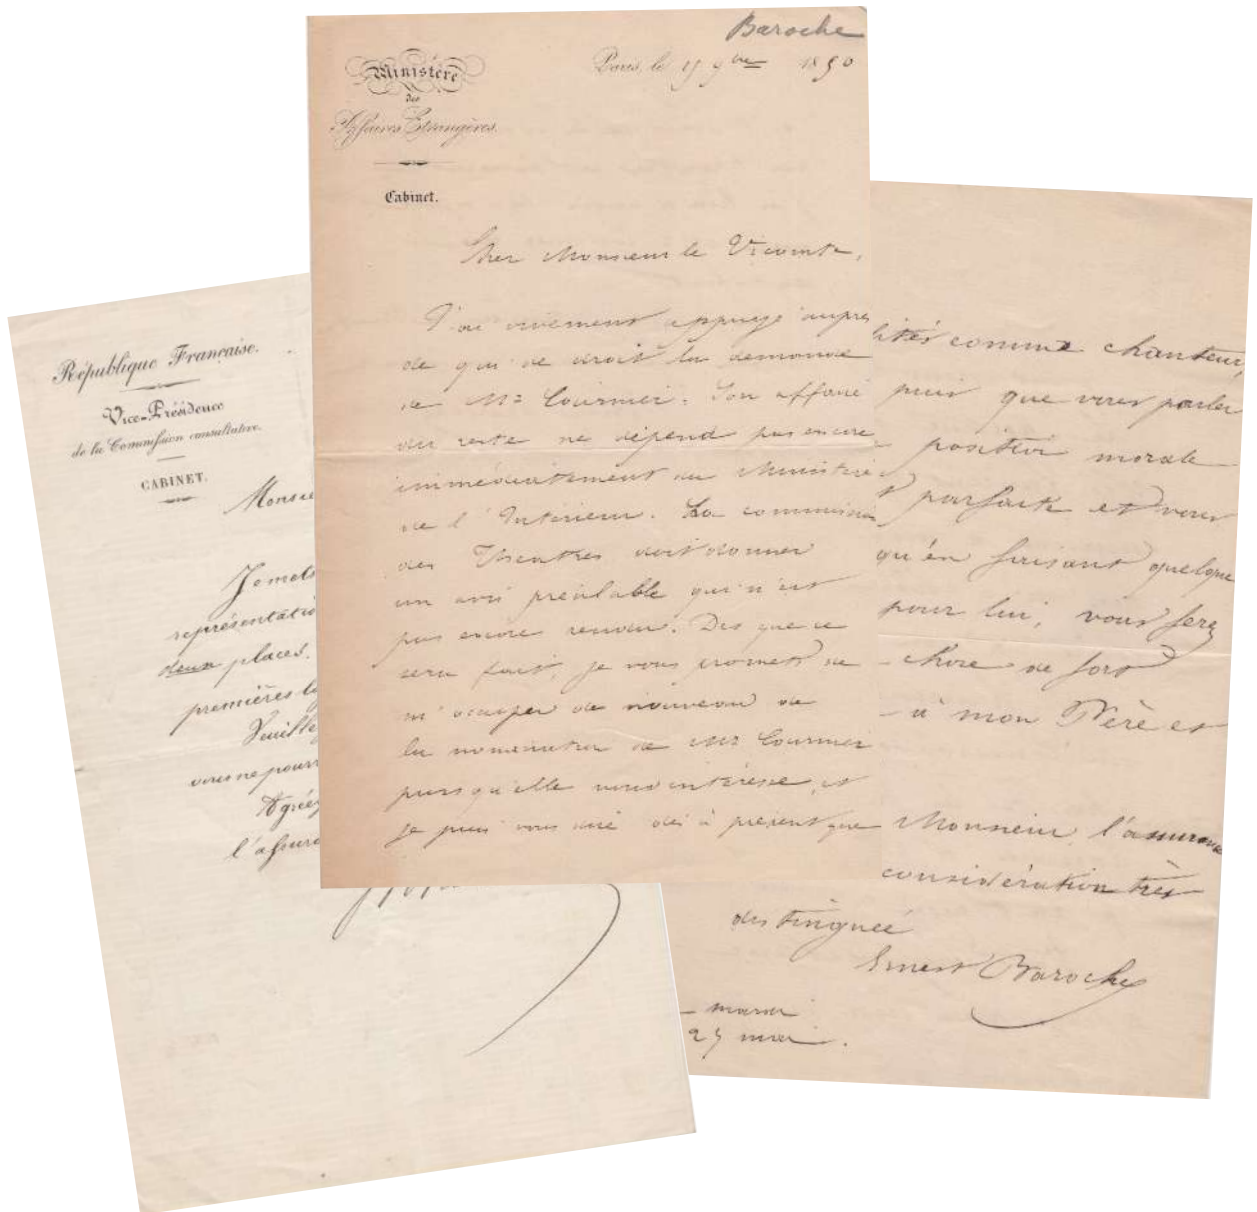 Baroche
Ministère
des
Affaires Etrangères.
Cabinet.
Paris, le 15 9bre 1850
Cher Monsieur le Vicomte,
J'ai vivement appuyé auprès
de qui de droit la demande
de Mr Cournier. Son affaire
du reste ne dépend pas encore
immédiatement du Ministère
de l'Intérieur. La commission
des Theatres doit donner
un avis préalable qui n'est
pas encore rendu. Dès que ce
sera fait, je vous promets de
m'occuper de nouveau de
la nomination de Mr Cournier
puisqu'elle vous intéresse, et
je puis vous dire dès à présent que
République Française.
Vice-Présidence
de la Commission consultative.
CABINET.
Monsie
Je mets
représentatio
deux places.
premières l
Veuille
vous ne pour
Agrée
l'assura
lités comme chanteur,
puis que vous parler
position morale
parfaite et vous
qu'en faisant quelque
pour lui, vous ferez
chose de fort
à mon Père et
Monsieur, l'assurance
considération très
distinguée
Ernest Baroche
mardi
25 mai.